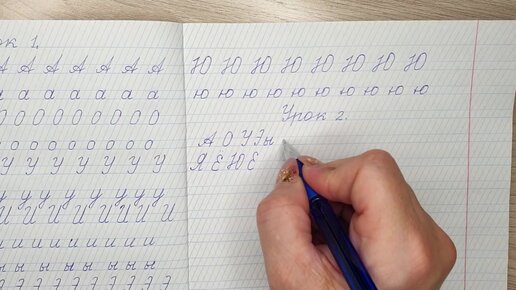 ок 1.
А А А А А А А
а а а а а а
О О О О О О О О
о о о о о о о о
У У У У У У У
у у у у у у у
И И И И И И И И
и и и и и и и
ы ы ы ы ы ы
Э Э Э Э Э Э Э
Ю Ю Ю Ю Ю Ю Ю Ю
ю ю ю ю ю ю ю ю ю ю
Урок 2.
А О У Э ы
Я Е Ю Ё